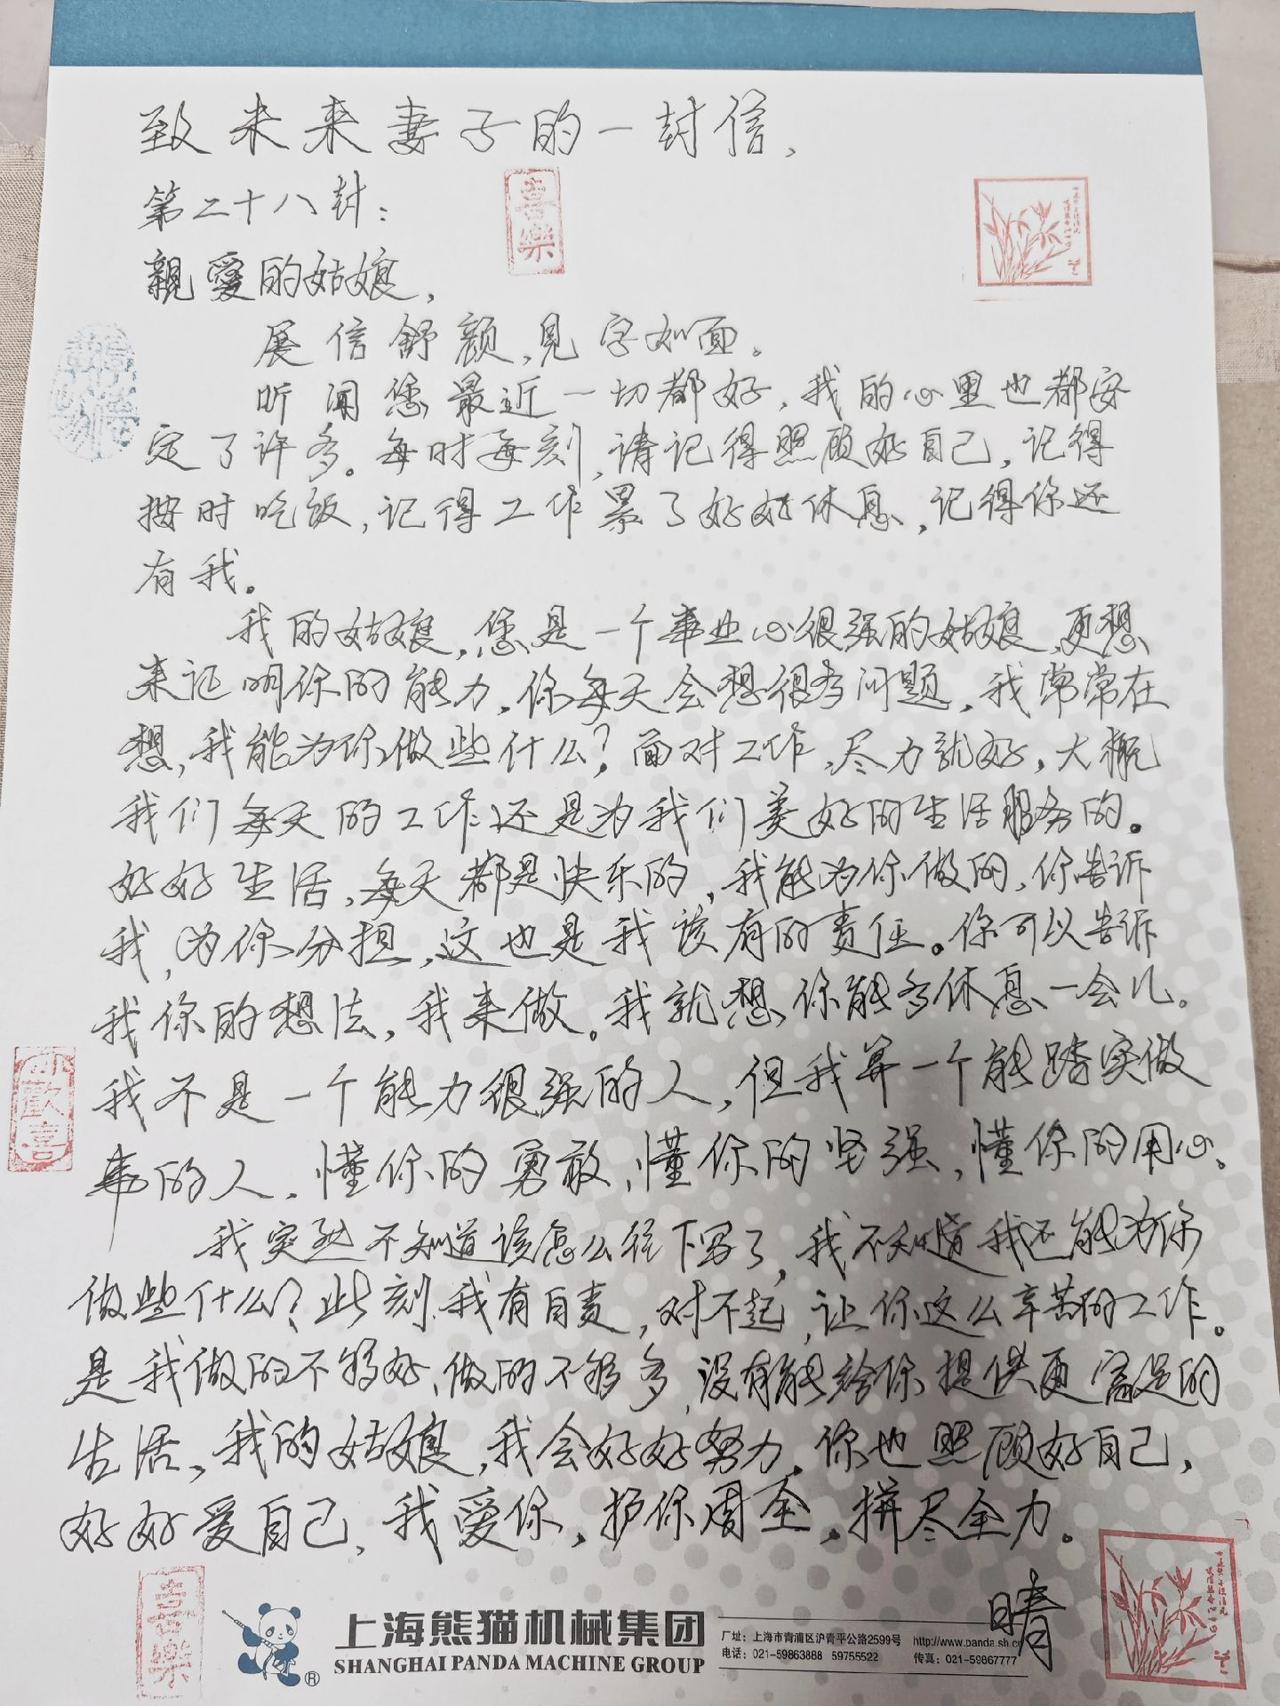 致未来妻子的一封信,
第二十八封:
喜樂
親愛的姑娘,
展信舒颜,见字如面。
听闻您最近一切都好,我的心里也都安
定了许多。每时每刻,请记得照顾好自己,记得
按时吃饭,记得工作累了好好休息,记得你还
有我。
我的姑娘,您是一个事业心很强的姑娘,更想
来证明你的能力,你每天会想很多问题,我常常在
想,我能为你做些什么?面对工作,尽力就好,大概
我们每天的工作还是为我们美好的生活服务的。
好好生活,每天都是快乐的,我能为你做的,你告诉
我,为你分担,这也是我该有的责任。你可以告诉
我你的想法,我来做。我就想,你能多休息一会儿。
我不是一个能力很强的人,但我算一个能踏实做
事的人,懂你的勇敢,懂你的坚强,懂你的用心。
歡喜
我突然不知道该怎么往下写了,我不知道我还能为你
做些什么?此刻,我有自责,对不起,让你这么辛苦的工作。
是我做的不够好,做的不够多,没有能给你提供更富足的
生活,我的姑娘,我会好好努力,你也照顾好自己,
好好爱自己,我爱你,护你周全,拼尽全力。
晴
喜樂
上海熊猫机械集团
SHANGHAI PANDA MACHINE GROUP
厂址:上海市青浦区沪青平公路2599号 http://www.panda.sh.cn
电话:021-59863888 59755522 传真:021-59867777